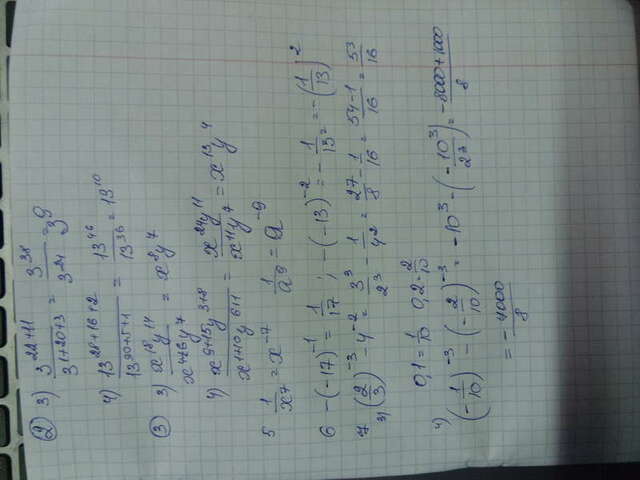 ② 3) 3^{22+11} / 3^{1+20+3} = 3^{38} / 3^{24} = 3^9
4) 13^{28+16+2} / 13^{30+5+1} = 13^{46} / 13^{36} = 13^{10}
③ 3) x^{18}y^{14} / x^{4+6}y^7 = x^8y^7
4) x^{9+15}y^{3+8} / x^{1+10}y^{6+1} = x^{24}y^{11} / x^{11}y^7 = x^{13}y^4
5 1/x^7 = x^{-7} 1/a^9 = a^{-9}
6 -(-17)^{-1} = 1/17 ; -(-13)^{-2} = -1/13^2 = -(1/13)^2
7 3) (2/3)^{-3} - 4^{-2} = 3^3/2^3 - 1/4^2 = 27/8 - 1/16 = 54-1/16 = 53/16
0,1 = 1/10 0,2 = 2/10
4) (-1/10)^{-3} - (-2/10)^{-3} = -10^3 - (-10^3/2^3) = -8000+1000/8
= -7000/8